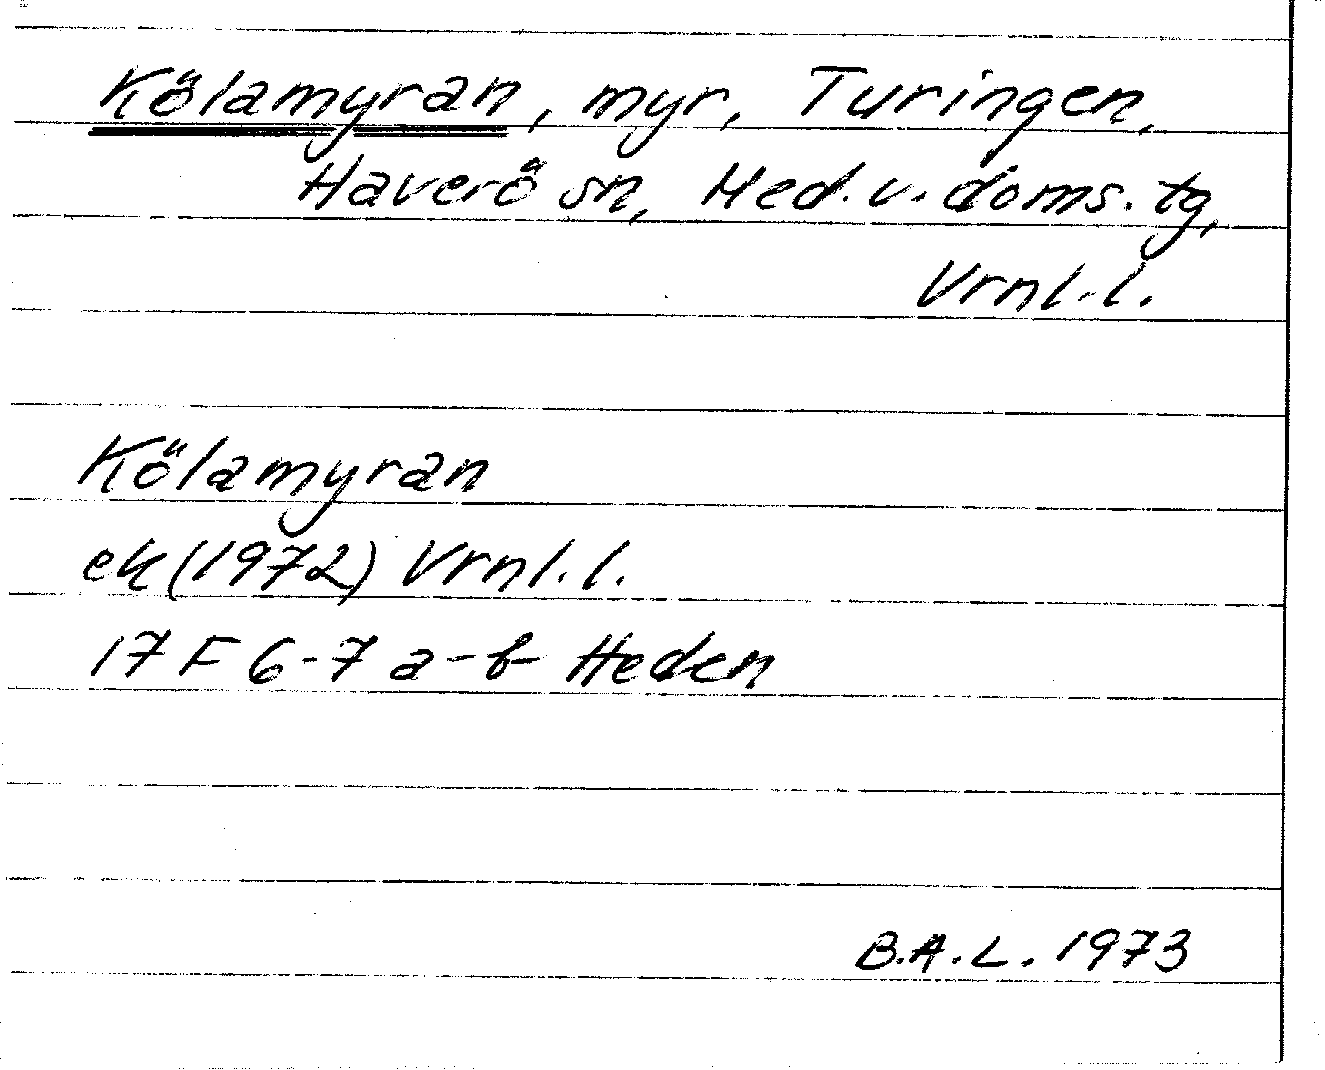 Kölamyran, myr, Turingen,
Haverö sn, Med.v. doms.tg,
Vrnl.l.
Kölamyran
ek (1972) Vrnl.l.
17 F 6-7 a-b Heden
B.A.L. 1973